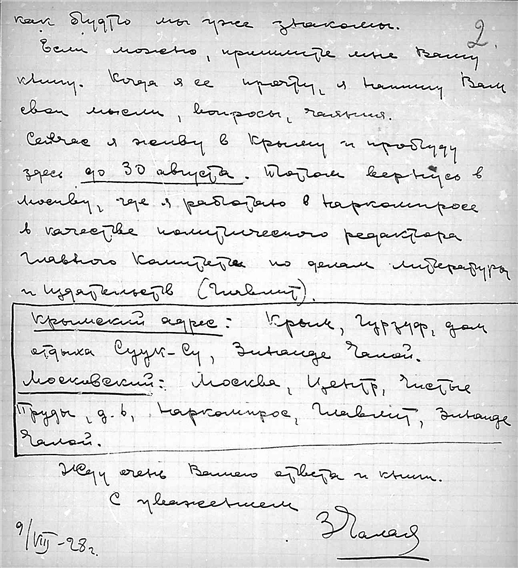 2.
как будто мы уже знакомы.
Если можно, пришлите мне Вашу
книгу. Когда я ее прочту, я напишу Вам
свои мысли, вопросы, чаяния.
Сейчас я живу в Крыму и пробуду
здесь до 30 августа. Потом вернусь в
Москву, где я работаю в Наркомпросе
в качестве политического редактора
Главного Комитета по делам литературы
и издательств (Главлит).
Крымский адрес: Крым, Гурзуф, дом
отдыха Суук-Су, Зинаиде Чалой.
Московский: Москва, Центр, Чистые
Пруды, д. 6, Наркомпрос, Главлит, Зинаиде
Чалой.
Жду очень Вашего ответа и книги.
С уважением
З Чалая
9/VIII-28 г.